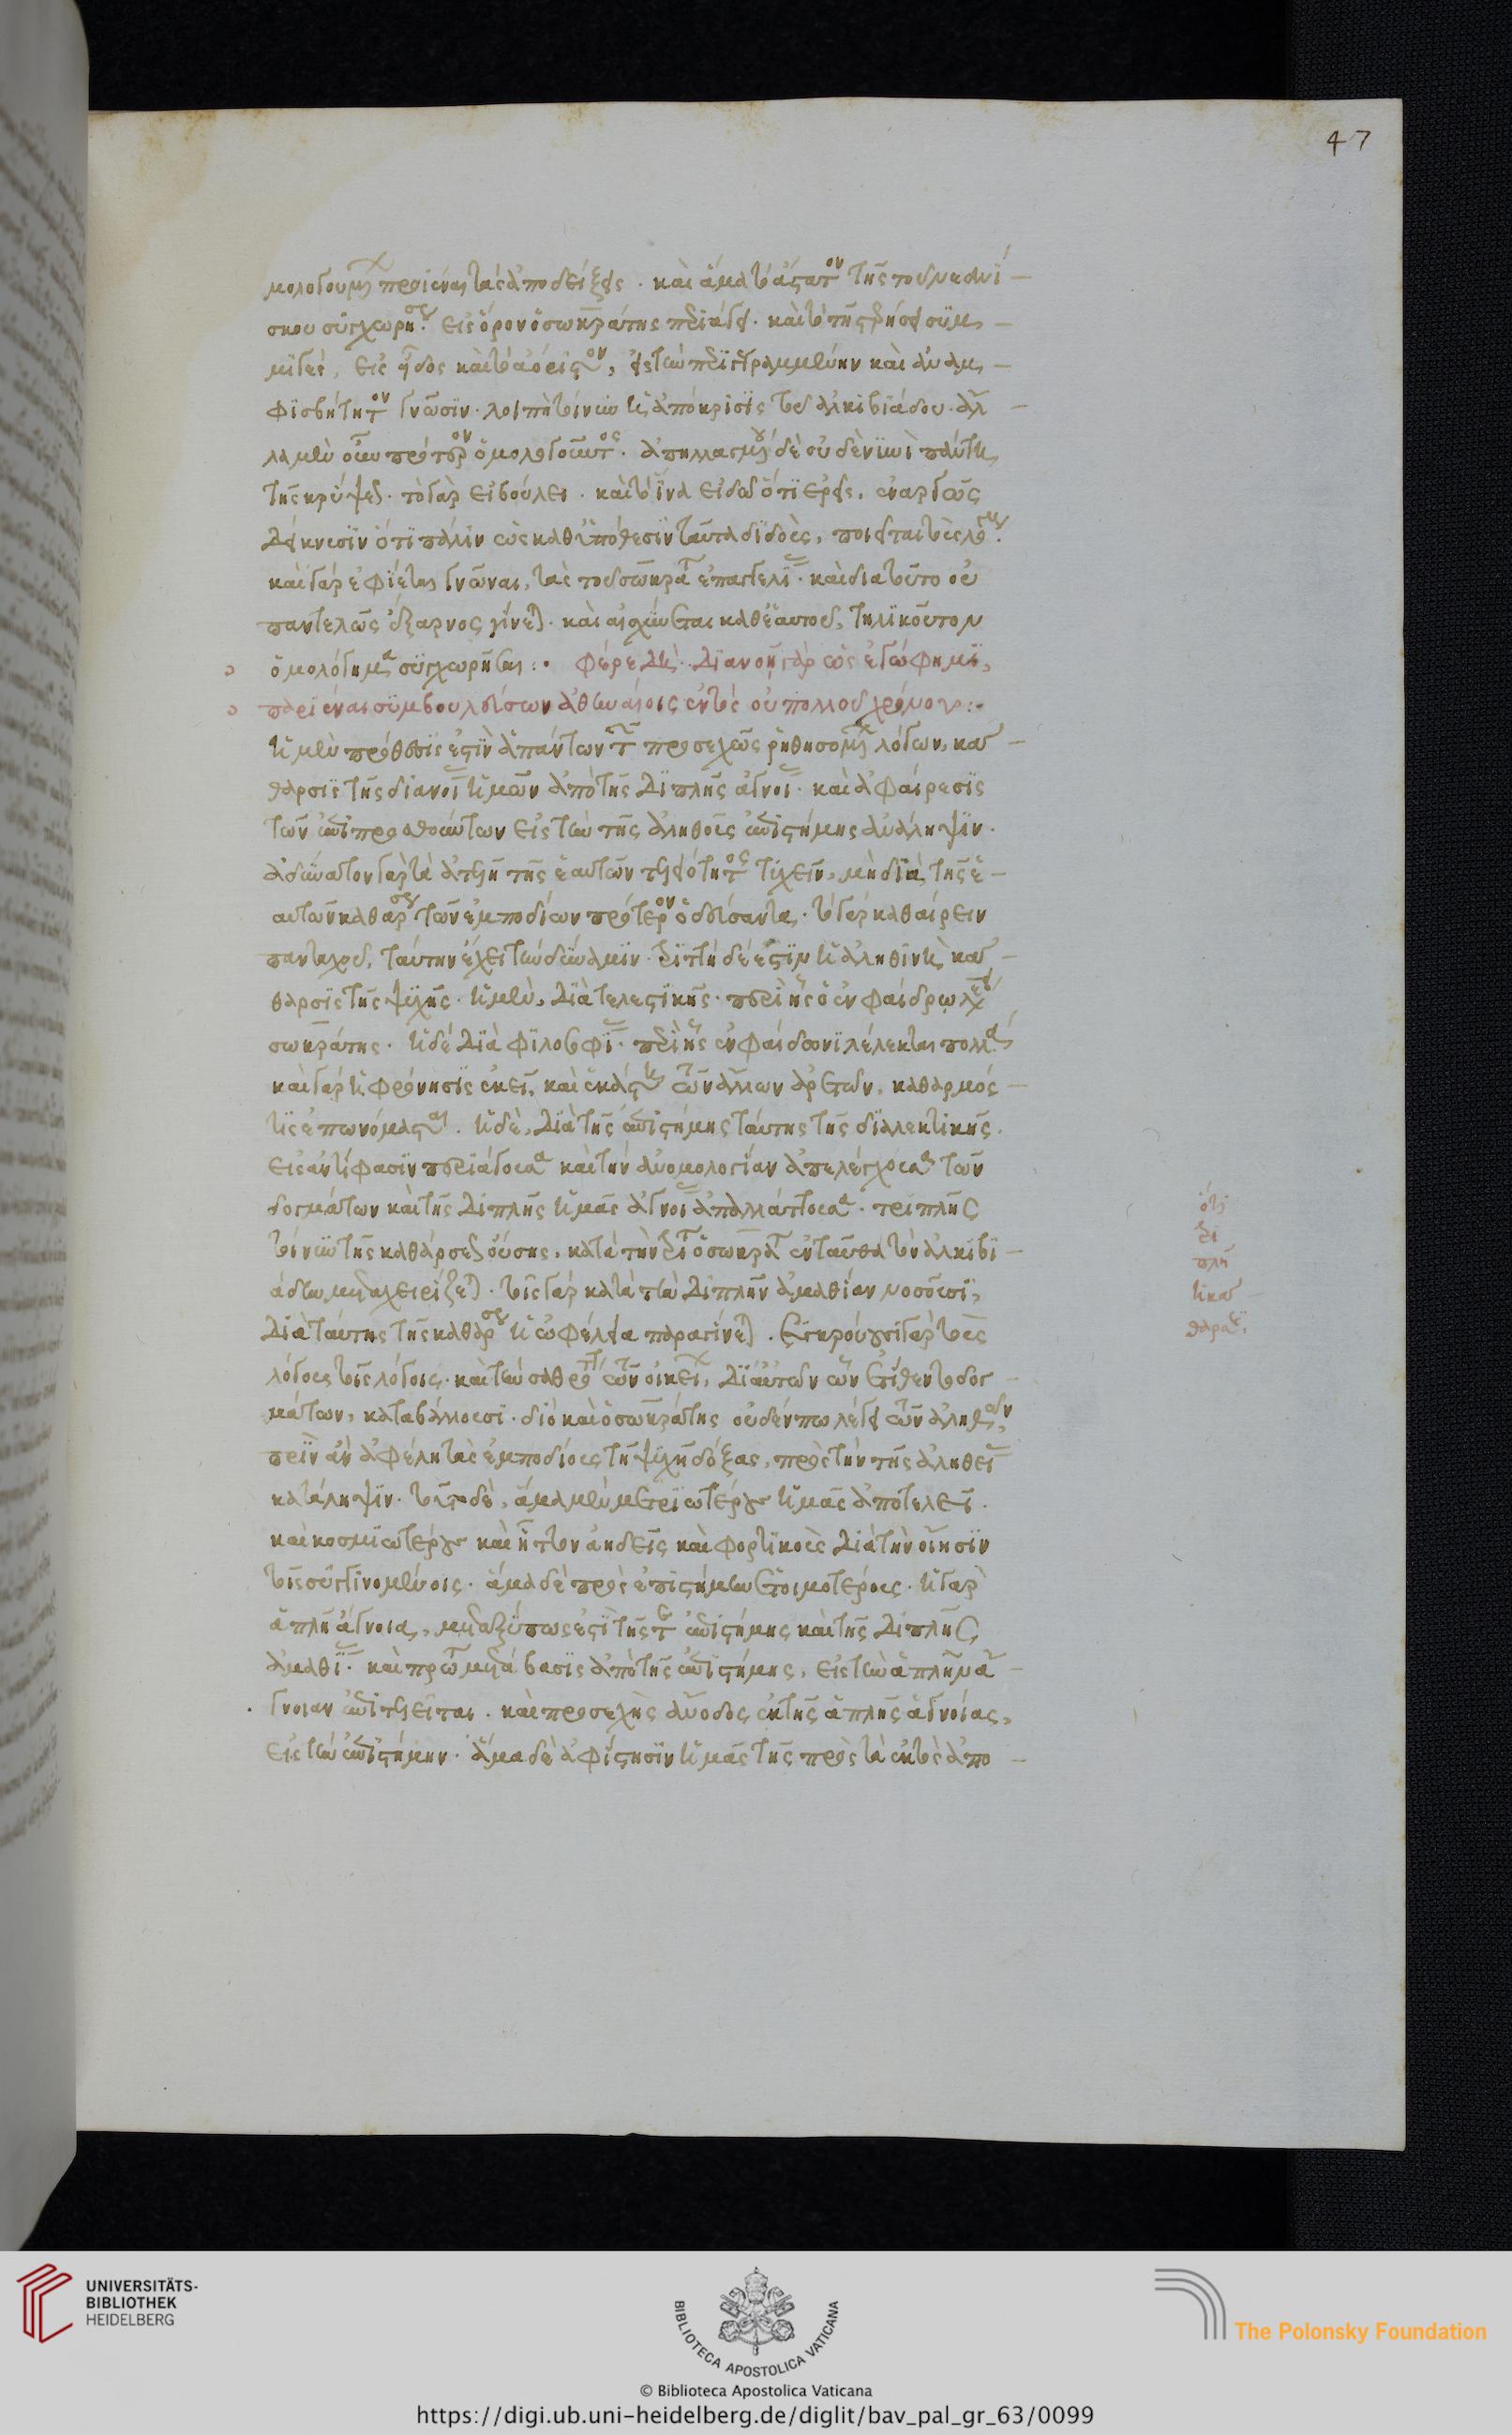 μολογουμένων προϊέναι τὰς ἀποδείξεις · καὶ ἅμα τὸ ἄστατον τῆς τοῦ νεανί
σκου συγχωρήσεως εἰς ὅρον ὁ σωκράτης περιάγει · καὶ τὸ τῆς ῥήσεως συμ
μιγὲς, εἰς εἶδος καὶ τὸ ἀόριστον, εἰς τὴν περιγεγραμμένην καὶ ἀναμ
φισβήτητον γνῶσιν · λοιπὴ τοίνυν ἡ ἀπόκρισις τοῦ ἀλκιβιάδου · ἀλ
λὰ μὲν οὖν πρότερον ὁμολογοῦντος · ἀπηλλαγμένου δὲ οὐδὲ νυνὶ πάντῃ
τῆς κρύψεως · τὸ γὰρ εἰ βούλει · καὶ τὸ ἵνα εἰδῶ ὅτι ἐρεῖς, ἐναργῶς
δείκνυσιν ὅτι πάλιν ὡς καθ' ὑπόθεσιν ταῦτα διδοὺς, ποιεῖται τοὺς λόγους ·
καὶ γὰρ ἐφίεται γνῶναι, τὰς τοῦ σωκράτους ἐπαγγελίας · καὶ διὰ τοῦτο οὐ
παντελῶς ἔξαρνος γίνεται · καὶ αἰσχύνεται καθ' ἑαυτοῦ, τηλικοῦτον
ὁμολόγημα συγχωρῆσαι :· Φέρε δή · διανοῇ γὰρ ὡς ἐγώ φημι,
παριέναι συμβουλεύσων ἀθηναίοις ἐντὸς οὐ πολλοῦ χρόνου :·
ἡ μὲν πρόθεσίς ἐστιν ἁπάντων τῶν προσεχῶς ῥηθησομένων λόγων, κά
θαρσις τῆς διανοίας ἡμῶν ἀπὸ τῆς διπλῆς ἀγνοίας · καὶ ἀφαίρεσις
τῶν ἐπιπροσθούντων εἰς τὴν τῆς ἀληθοῦς ἐπιστήμης ἀνάληψιν ·
ἀδύνατον γὰρ τὰ ἀτελῆ τῆς ἑαυτῶν τελειότητος τυχεῖν, μὴ διὰ τῆς ἑ
αυτῶν καθάρσεως τῶν ἐμποδίων πρότερον ὁδεύσαντα · τὸ γὰρ καθαίρειν
πανταχοῦ, ταύτην ἔχει τὴν δύναμιν · τριττὴ δέ ἐστιν ἡ ἀληθινὴ κά
θαρσις τῆς ψυχῆς · ἡ μὲν, διὰ τελεστικῆς · περὶ ἧς ὁ ἐν φαίδρῳ λέγει
σωκράτης · ἡ δὲ διὰ φιλοσοφίας · περὶ ἧς ἐν φαίδωνι λέλεκται πολλά
καὶ γὰρ ἡ φρόνησις ἐκεῖ, καὶ ἑκάστη τῶν ἄλλων ἀρετῶν, καθαρμός
τις ἐπωνόμασται · ἡ δὲ, διὰ τῆς ἐπιστήμης ταύτης τῆς διαλεκτικῆς ·
εἰς ἀντίφασιν περιάγουσα καὶ τὴν ἀνομολογίαν ἀπελέγχουσα τῶν
δογμάτων καὶ τῆς διπλῆς ἡμᾶς ἀγνοίας ἀπαλλάττουσα · τριπλῆς
τοίνυν τῆς καθάρσεως οὔσης, κατὰ τὴν τρίτην ὁ σωκράτης ἐνταῦθα τὸν ἀλκιβι
άδην μεταχειρίζεται · τοῖς γὰρ κατὰ τὴν διπλῆν ἀμαθίαν νοσοῦσι,
διὰ ταύτης τῆς καθάρσεως ἡ ὠφέλεια παραγίνεται · γὰρ τοὺς
λόγους τοῖς λόγοις · καὶ τὴν τῶν οἰκείων, δι' αὐτῶν ὧν ἐτίθεντο δογ
μάτων, καταβάλλουσι · διὸ καὶ ὁ σωκράτης οὐδέν πω λέγει τῶν ἀληθῶν,
πρὶν ἂν ἀφέλῃ τὰς ἐμποδίους τῇ ψυχῇ δόξας, πρὸς τὴν τῆς ἀληθείας
κατάληψιν · τοῦτο δὲ, ἅμα μὲν μετριωτέρους ἡμᾶς ἀποτελεῖ ·
καὶ κοσμιωτέρους καὶ ἧττον ἀηδεῖς καὶ φορτικοὺς διὰ τὴν οἴησιν
τοῖς συγγινομένοις · ἅμα δὲ πρὸς ἐπιστήμην ἑτοιμοτέρους · ἡ γὰρ
ἁπλῆ ἄγνοια, μεταξύ πως ἐστὶ τῆς τε ἐπιστήμης καὶ τῆς διπλῆς
ἀμαθίας · καὶ πρώτη μετάβασις ἀπὸ τῆς ἐπιστήμης, εἰς τὴν ἁπλῆν ἄ
γνοιαν ἐπιτελεῖται · καὶ προσεχὴς ἄνοδος ἐκ τῆς ἁπλῆς ἀγνοίας,
εἰς τὴν ἐπιστήμην · ἅμα δὲ ἀφίστησιν ἡμᾶς τῆς πρὸς τὰ ἐκτὸς ἀπο
ὅτι
τρι
πλῆ
ἡ κά
θαρσις
47
UNIVERSITÄTS-
BIBLIOTHEK
HEIDELBERG
BIBLIOTECA APOSTOLICA VATICANA
© Biblioteca Apostolica Vaticana
The Polonsky Foundation
https://digi.ub.uni-heidelberg.de/diglit/bav_pal_gr_63/0099